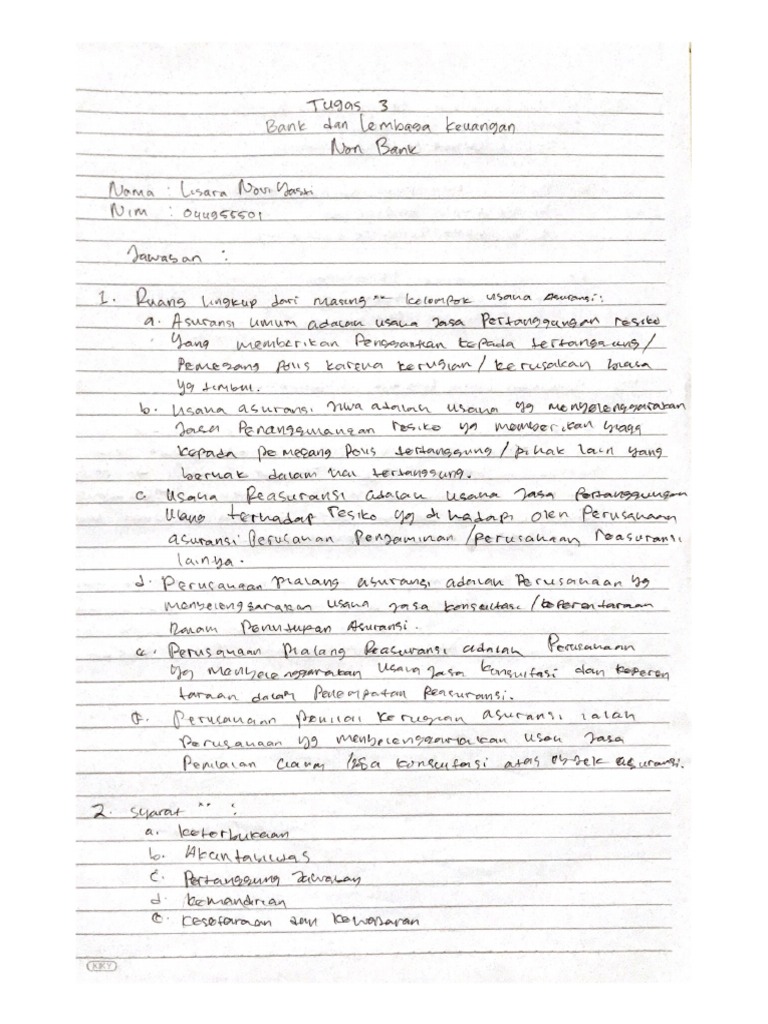 Tugas 3
Bank dan Lembaga Keuangan
Non Bank
Nama : Lisara Novi Yasti
Nim : 044955501
Jawaban :
1. Ruang lingkup dari masing" kelompok usaha Asuransi:
a. Asuransi umum adalah usaha Jasa Pertanggungan resiko
yang memberikan Penggantian kepada tertanggung/
Pemegang Polis karena kerugian/kerusakan biaya
yg timbul.
b. Usaha asuransi Jiwa adalah usaha yg menyelenggarakan
Jasa Penanggulangan resiko yg memberikan
kepada pemegang Polis tertanggung/pihak lain yang
berhak dalam hal tertanggung.
c. Usaha Reasuransi adalah usaha Jasa Pertanggungan
Ulang terhadap resiko yg dihadapi oleh Perusahaan
asuransi Perusahan Penjaminan/perusahaan reasuransi
lainya.
d. Perusahaan Pialang asuransi adalah Perusahaan yg
menyelenggarakan usaha Jasa konsultasi/keperentaraan
Dalam Penutupan Asuransi.
e. Perusahaan Pialang Reasuransi adalah Perusahaan
yg menyelenggarakan usaha Jasa Konsultasi dan keperen
taraan dalam Penempatan Reasuransi.
f. Perusahaan Penilai Kerugian asuransi ialah
Perusahaan yg menyelenggarakan usah Jasa
Penilaian Claim konsultasi atas objek asuransi.
2. Syarat " :
a. Keterbukaan
b. Akuntabilitas
c. Pertanggung Jawaban
d. Kemandirian
e. Kesetaraan dan Kewajaran
KKY